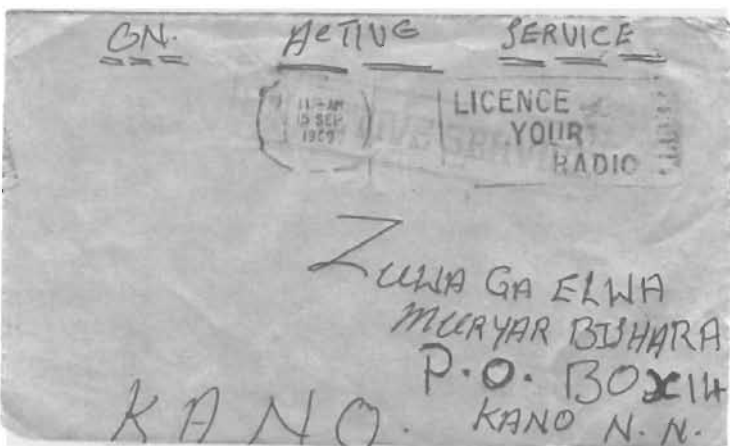 ON. ACTIVE SERVICE
11 - AM
15 SEP
1969
LICENCE
YOUR
RADIO
ZUWA GA ELWA
MURYAR BISHARA
P.O. BOX 14
KANO. KANO N.N.